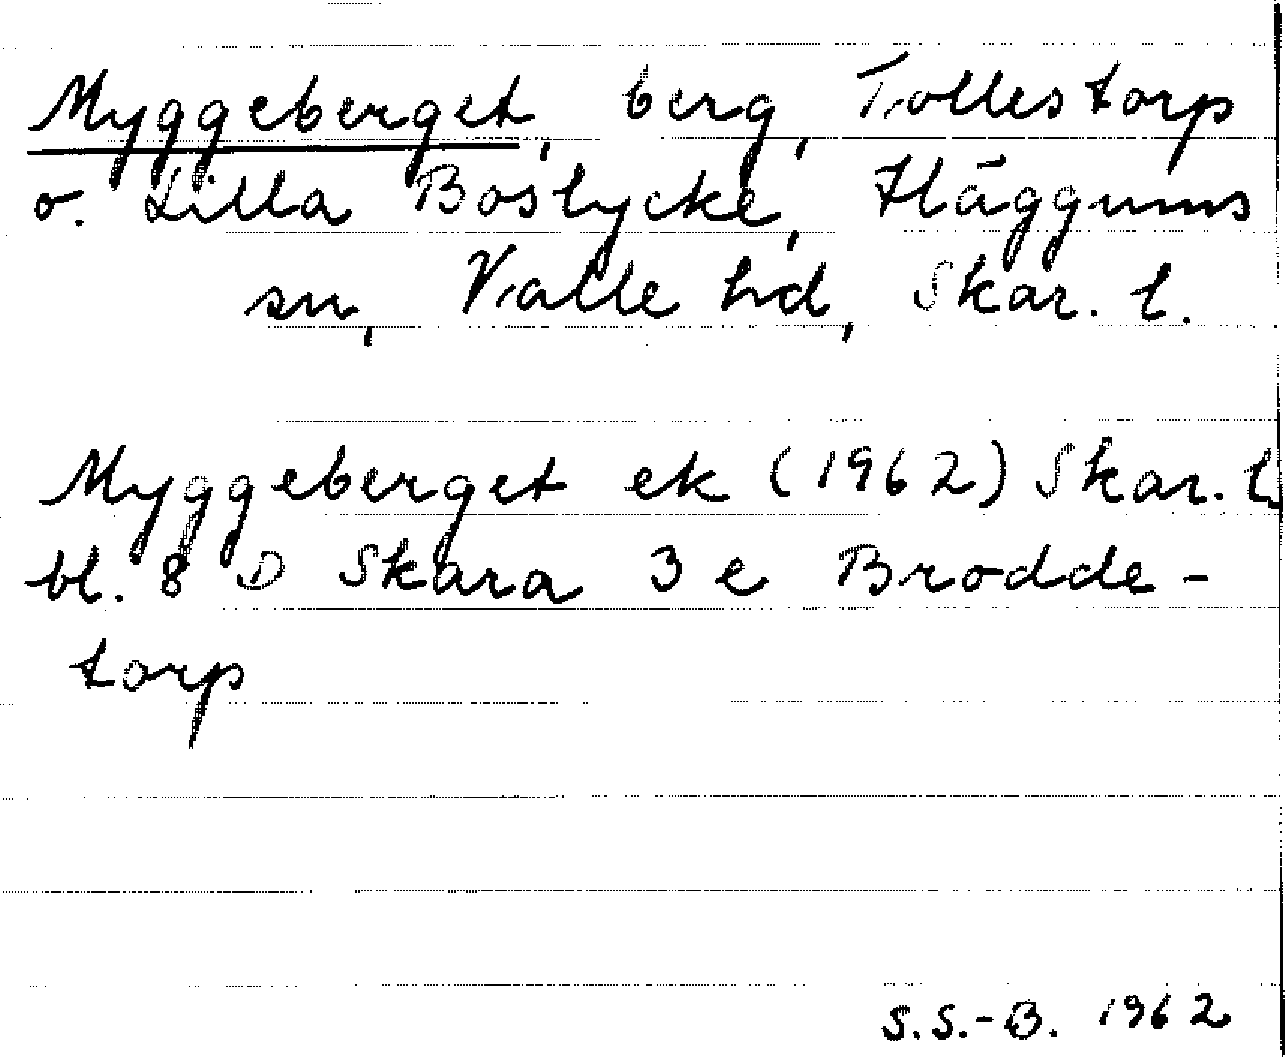 Myggeberget, berg, Tollestorp
o. Lilla Boslycke, Häggums
sn, Valle hd, Skar. l.
Myggeberget ek (1962) Skar. l.
bl. 8 D Skara 3 e Brodde-
torp
S.S.-B. 1962